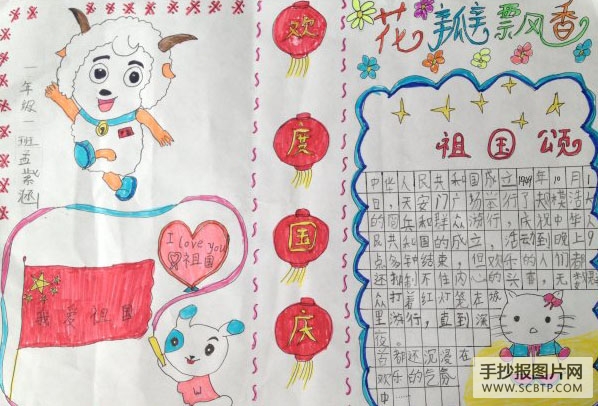 花瓣飘香
一年级一班孟紫
欢
度
国
庆
I love you
祖国
我爱祖国
W
祖国颂
中华人民共和国成立1949年10月1
日,天安门广场举行了大规模浩大
的阅兵和群众游行,庆祝中华人
民共和国的成立,活动到晚上9
点多钟结束,但欢乐的人们都
还抑制不住内心的喜,无数群
众打着红灯笼在城
里游行,直到深
夜。
首都还沉浸在
欢乐的气氛
中
手抄报图片网
www.SCBTP.com